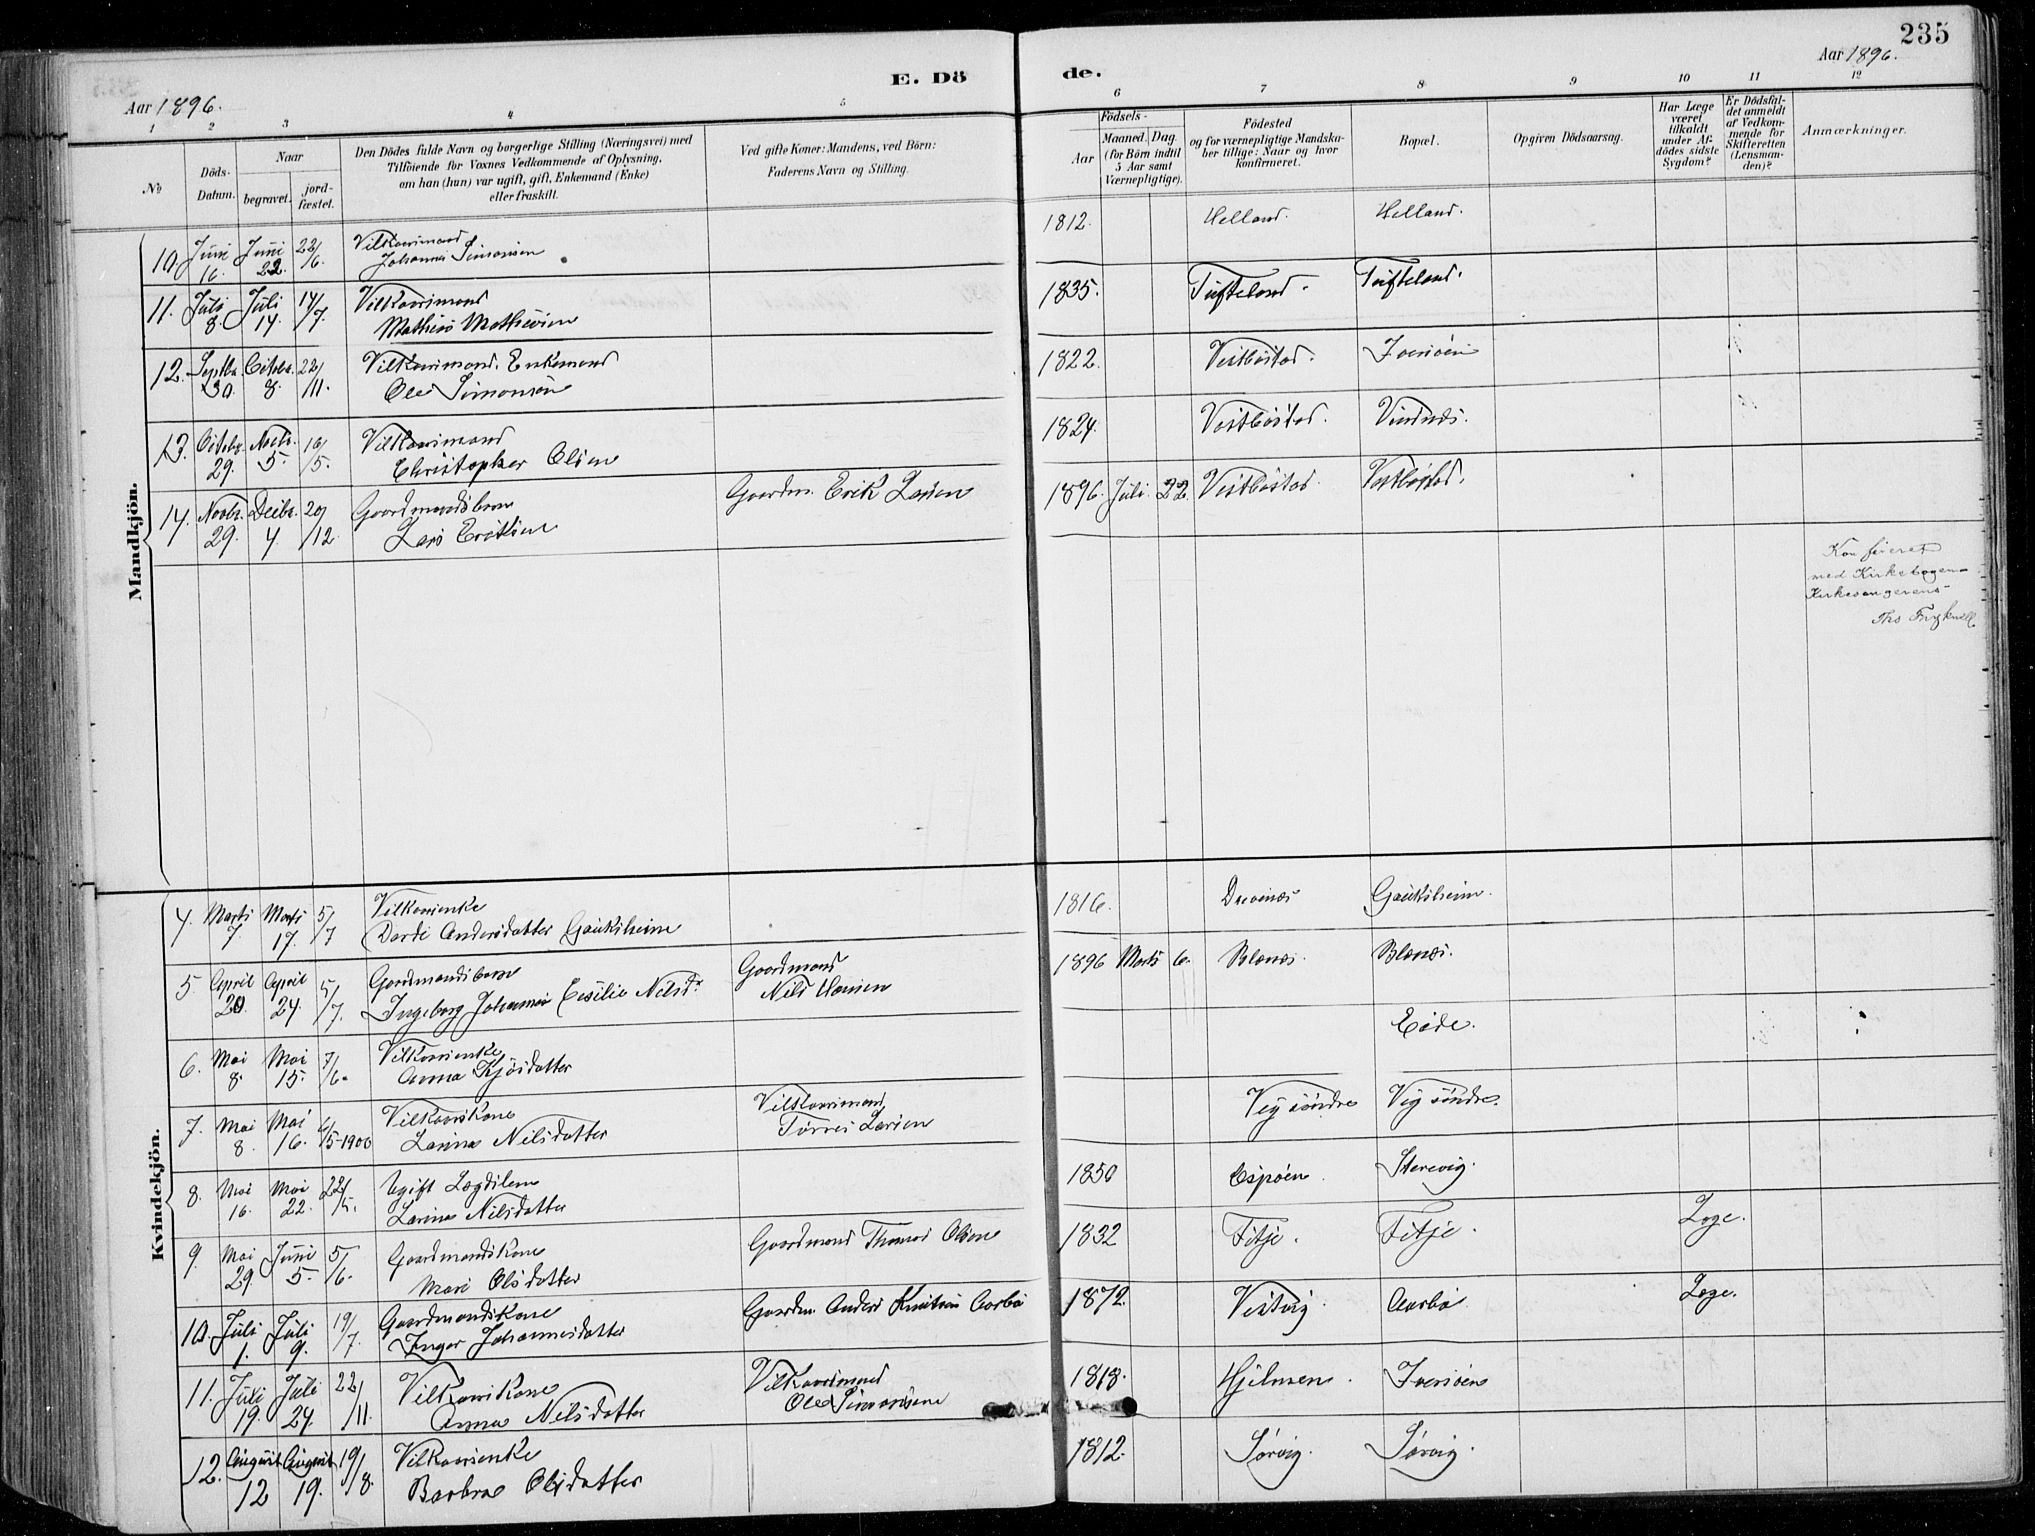 235
E. Dö de.
Aar 1896.
Aar 1896.
1 2 3 4 5 6 7 8 9 10 11 12
№
Döds-
Datum.
Naar
begravet.
jord-
fæstet.
Den Dödes fulde Navn og borgerlige Stilling (Næringsvei) med
Tilföiende for Voxnes Vedkommende af Oplysning,
om han (hun) var ugift, gift, Enkemand (Enke)
eller fraskilt.
Ved gifte Koner: Mandens, ved Börn:
Faderens Navn og Stilling.
Födsels-
Aar
Maaned. Dag.
(for Börn indtil
5 Aar samt
Værnepligtige).
Födested
og for værnepligtige Mandska-
ber tillige: Naar og hvor
konfirmeret.
Bopæl.
Opgiven Dödsaarsag.
Har Læge
været
tilkaldt
under Af-
dödes sidste
Sygdom?
Er Dödsfal-
det anmeldt
af Vedkom-
mende for
Skifteretten
(Lensman-
den)?
Anmærkninger.
Mandkjön.
10. Juni 16. Juni 22. 22/6. Vilkaarsmand
Johannes Simonsen
1812. Helland. Helland.
11. Juli 8. Juli 14. 14/7. Vilkaarsmand
Mathias Mathisen
1835. Tufteland. Tufteland.
12. Septbr. 30. Octobr. 8. 22/11. Vilkaarsmand. Enkemand
Ole Simonsen
1822. Vestbøstad. Iversøen
13. Octobr. 29. Novbr. 5. 16/5. Vilkaarsmand
Christopher Olsen
1824. Vestbøstad. Vindnæs.
14. Novbr. 29. Decbr. 4. 20/12. Gaardmandsbarn
Lars Eriksen
Gaardm. Erik Larsen
1896. Juli. 22. Vestbøstad. Vestbøstad.
Konfereret
med Kirkebogen
Kirkesangerens
Ths
Kvindekjön.
4. Marts 7. Marts 17. 5/7 Vilkaarsenke
Dordi Andersdatter Gauksheim
1816. Drevnæs Gauksheim.
5. April 20. April 24. 5/7. Gardmandsbarn
Ingeborg Johannes Cesilie Nilsd.
Gaardmand
Nils Hansen
1896 Marts 6. Blænæs. Blænæs.
6. Mai 8. Mai 15. 7/6. Vilkaarsenke
Anna Kjøsdatter
Eide.
7. Mai 8. Mai 16. 6/5-1900 Vilkaarskone
Larina Nilsdatter
Vilkaarsmand
Tørres Larsen
Vig söndre Vig söndre.
8. Mai 16. Mai 22. 22/5. Ugift Lægdslem
Larina Nilsdatter
1850 Espøen. Sterevig.
9. Mai 29 Juni 5. 5/6. Gaardmandskone
Mari Olsdatter
Gaardmand Thomas Olsen
1832 Fitje. Fitje. Læge.
10. Juli 1. Juli 9. 19/7. Gaardmandskone
Inger Johannesdatter
Gaardm. Anders Knutsen Aarbø
1872. Vestvig. Aarbø. Læge.
11. Juli 19. Juli 24. 22/11. Vilkaarskone
Anna Nilsdatter
Vilkaarsmand
Ole Simonsen
1818. Hjelmen. Iversøen
12. August 12 August 19. 19/8. Vilkaarsenke
Barbra Olsdatter
1812. Sørvig. Sørvig.